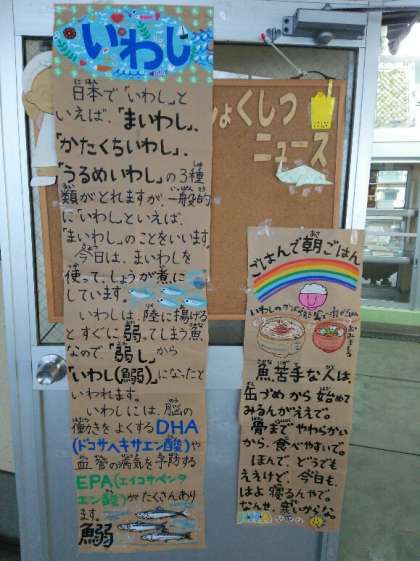 いわし
日本で「いわし」と
いえば、「まいわし」、
「かたくちいわし」、
「うるめいわし」の3種
類がとれますが、一般的
に「いわし」といえば、
「まいわし」のことをいいます。
今日は、まいわしを
使って、しょうが煮に
しています。
いわしは、陸に揚げる
とすぐに弱ってしまう魚
なので「弱し」から
「いわし(鰯)」になったと
いわれます。
いわしには、脳の
働きをよくするDHA
(ドコサヘキサエン酸)や
血管の病気を予防する
EPA(エイコサペンタ
エン酸)がたくさんあり
ます。
鰯
ょくしつ
ニュース
ごはんで朝ごはん
魚苦手な人は、
缶づめから始めて
みるんがええで。
骨までやわらかい
から、食べやすいで。
ほんで、どうでも
ええけど、今日も、
はよ寝るんやで。
なんせ、寒いからな。